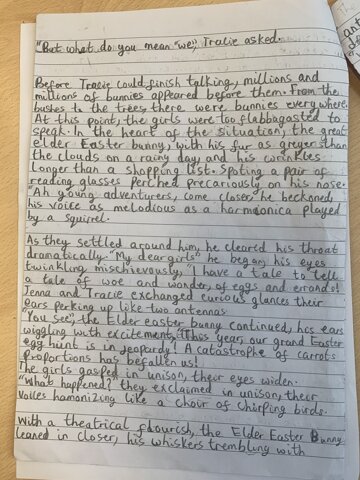 "But what do you mean "we", Tracie asked.
Before Tracie could finish talking, millions and
millions of bunnies appeared before them. From the
bushes to the trees, there were bunnies everywhere.
At this point, the girls were too flabbagasted to
speak. In the heart of the situation, the great
elder Easter bunny, with his fur as greyer than
the clouds on a rainy day, and his wrinkles
longer than a shopping list. Spoting a pair of
reading glasses perched precariously on his nose.
"Ah young adventurers, come closer" he beckoned,
his voice as melodious as a harmonica played
by a squirrel.
As they settled around him, he cleared his throat
dramatically. "My dear girls" he began, his eyes
twinkling mischievously, "I have a tale to tell
a tale of woe and wonder, of eggs and errands!
Jenna and Tracie exchanged curious glances their
ears perking up like two antennas
"You see", the Elder easter bunny continued, his ears
wiggling with excitement, "This year, our grand Easter
egg hunt is in jeopardy! A catastrophe of carrots
Proportions has befallen us!
The girls gasped in unison, their eyes widen.
"What happened? they exclaimed in unison, their
voices hamonizing like a choir of chirping birds.
With a theatrical flourish, the Elder Easter Bunny
leaned in closer, his whiskers trembling with